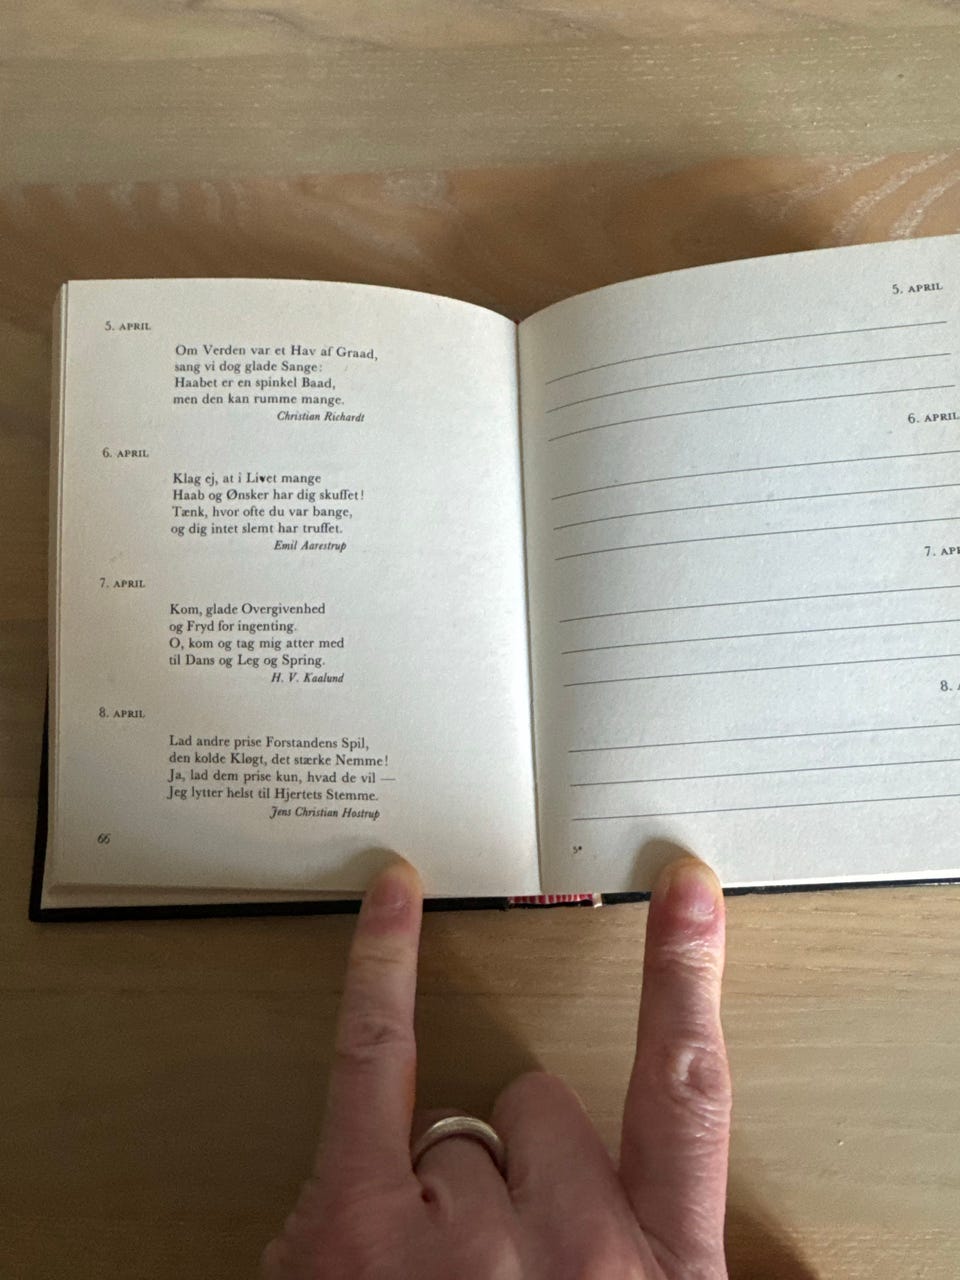 5. APRIL
Om Verden var et Hav af Graad,
sang vi dog glade Sange:
Haabet er en spinkel Baad,
men den kan rumme mange.
Christian Richardt
6. APRIL
Klag ej, at i Livet mange
Haab og Ønsker har dig skuffet!
Tænk, hvor ofte du var bange,
og dig intet slemt har truffet.
Emil Aarestrup
7. APRIL
Kom, glade Overgivenhed
og Fryd for ingenting.
O, kom og tag mig atter med
til Dans og Leg og Spring.
H. V. Kaalund
8. APRIL
Lad andre prise Forstandens Spil,
den kolde Kløgt, det stærke Nemme!
Ja, lad dem prise kun, hvad de vil —
Jeg lytter helst til Hjertets Stemme.
Jens Christian Hostrup
66
5. APRIL
6. APRIL
7. APR
8.
5*